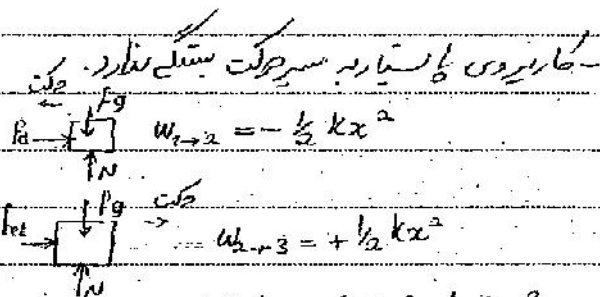 - کار نیروی پایستار به مسیر حرکت بستگی ندارد.
حرکت ←
Fg
W₁→₂ = - ½ kx²
N
حرکت →
Fg
Fel
W₂→₃ = + ½ kx²
N